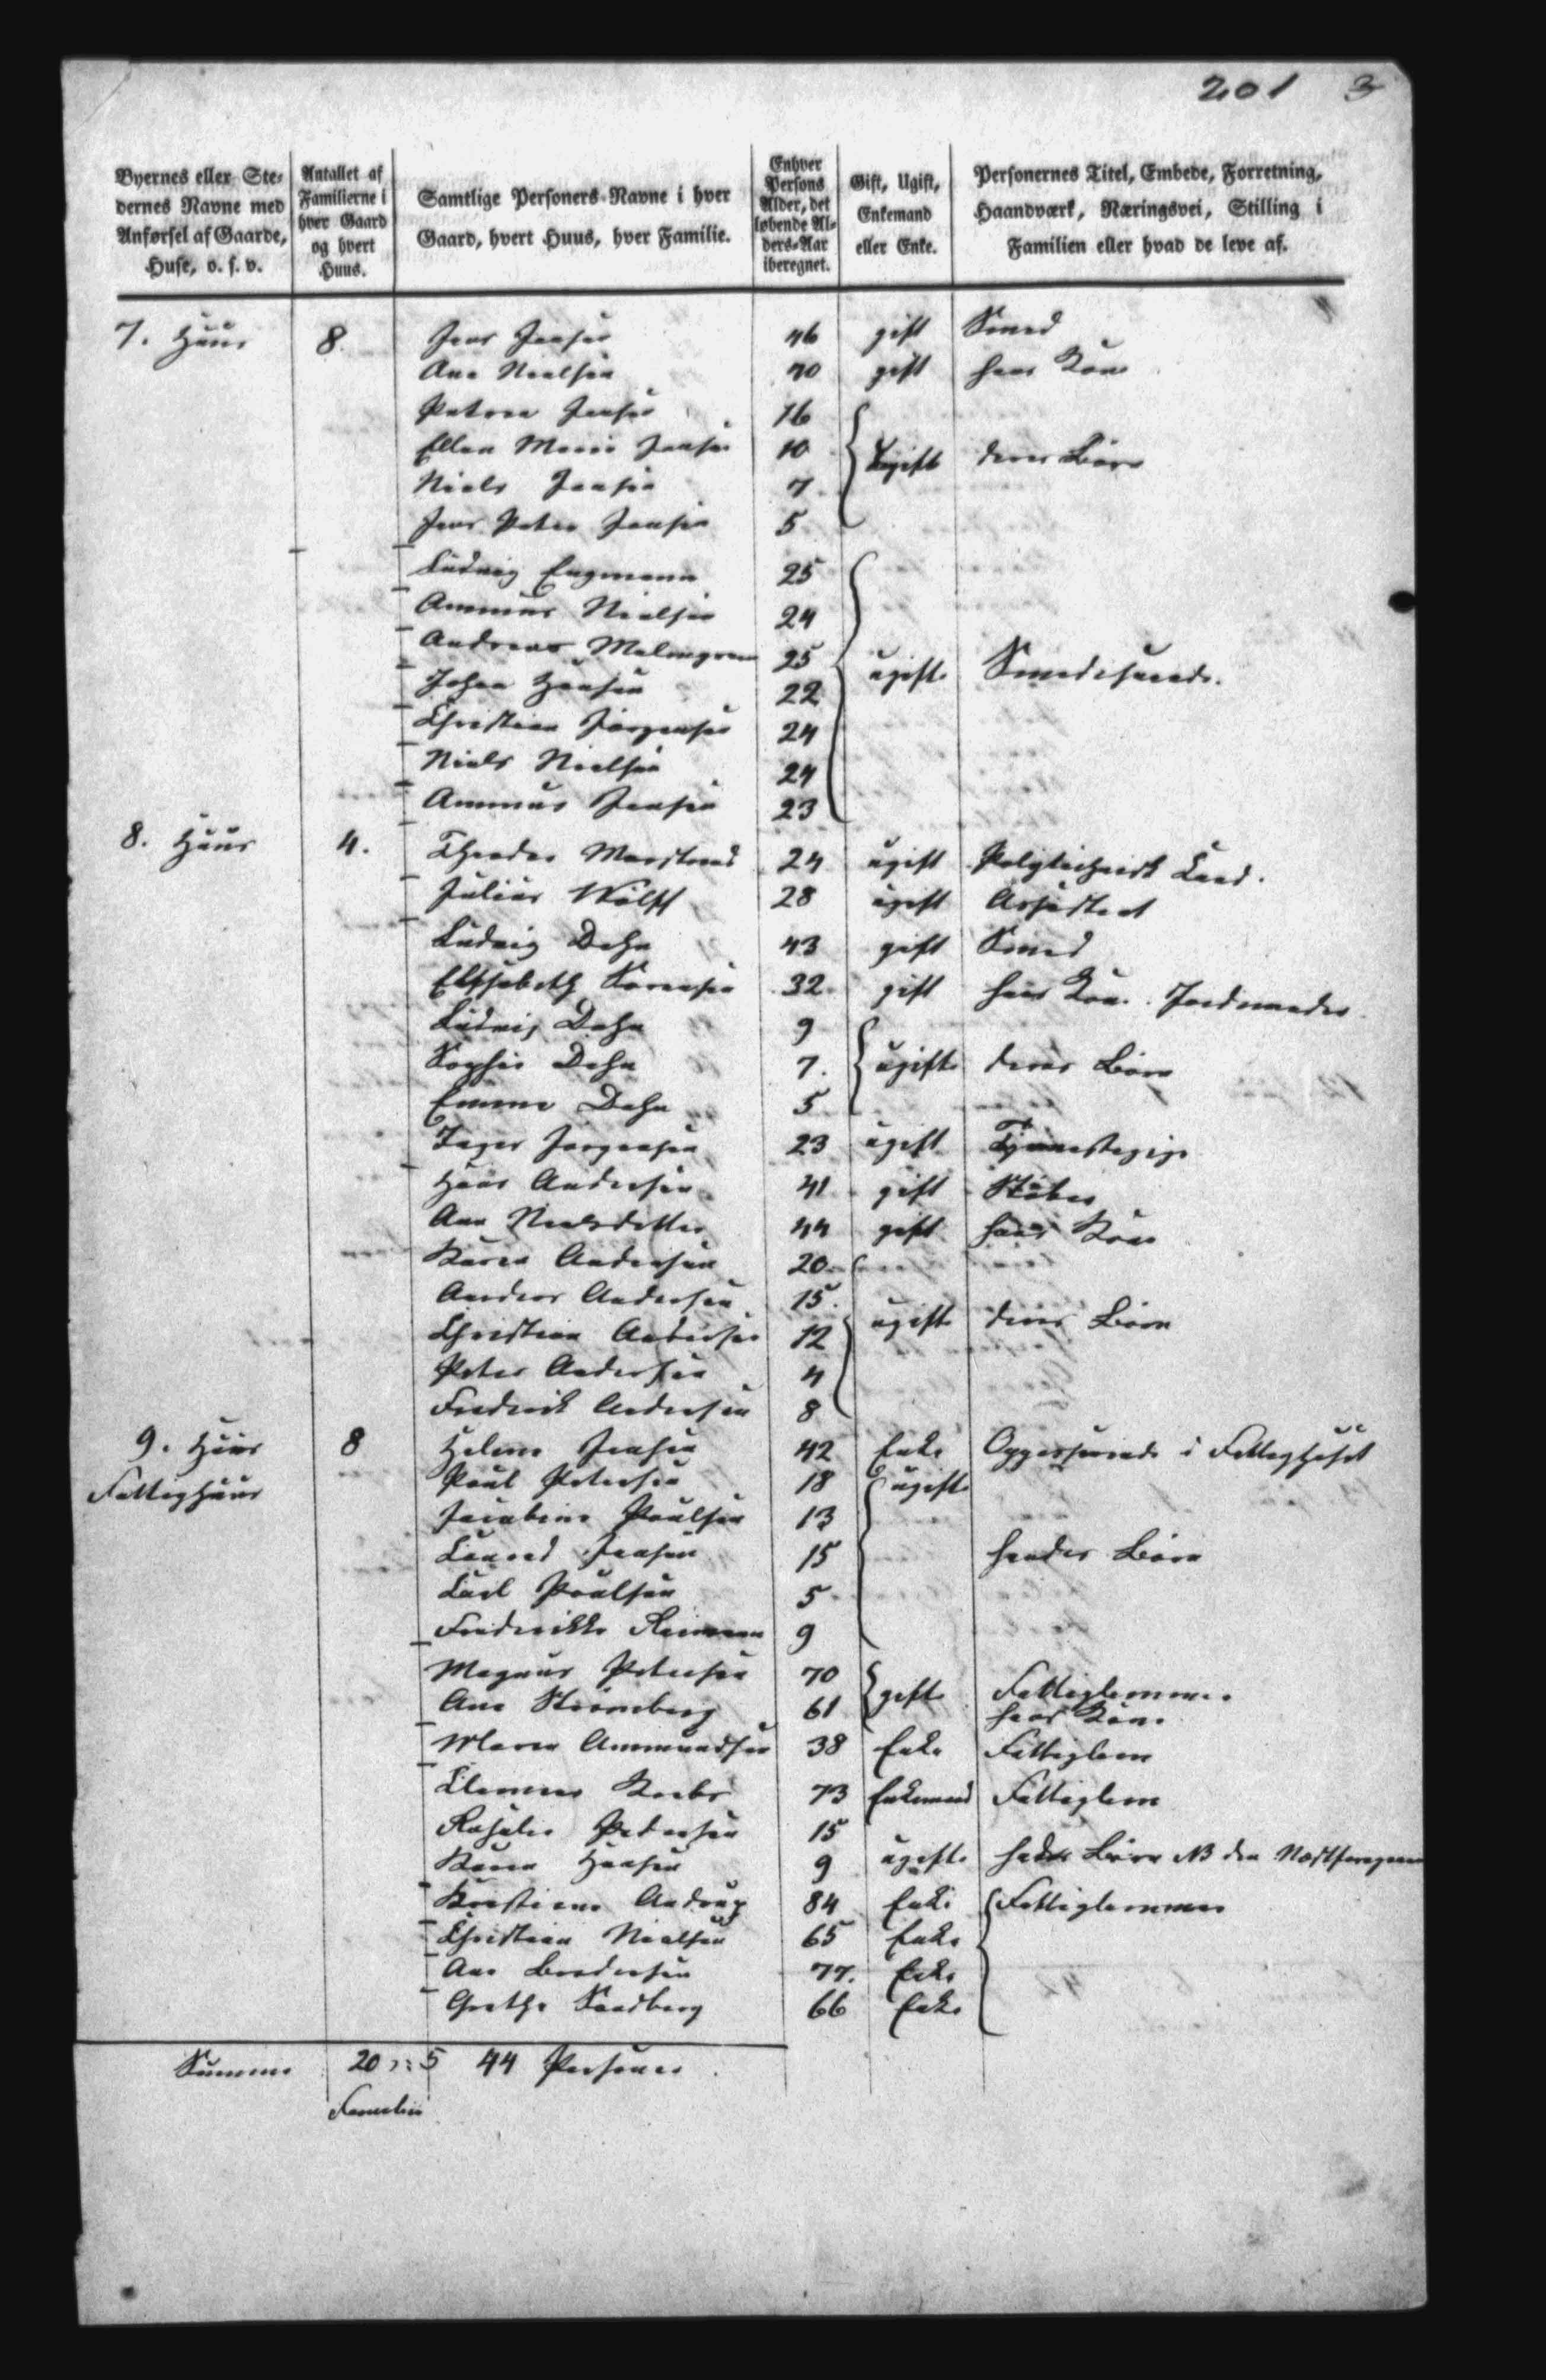 201 3
Byernes eller Ste-
dernes Navne med
Anførsel af Gaarde,
Huse, o. s. v.
Antallet af
Familierne i
hver Gaard
og hvert
Huus.
Samtlige Personers Navne i hver
Gaard, hvert Huus, hver Familie.
Enhver
Persons
Alder, det
løbende Al-
ders-Aar
iberegnet.
Gift, Ugift,
Enkemand
eller Enke.
Personernes Titel, Embede, Forretning,
Haandværk, Næringsvei, Stilling i
Familien eller hvad de leve af.
7. Huus 8 Jens Jensen 46 gift Smed
Ane Nielsen 40 gift hans Kone
Petrea Jensen 16
Ellen Marie Jensen 10 Ugift deres Børn
Niels Jensen 7
Jens Peter Jensen 5
Ludvig Engmann 25
Ammus Nielsen 24
Andreas Malmgreen 25 ugifte Smedesvende.
Johan Hansen 22
Christian Jørgensen 24
Niels Nielsen 24
Ammus Jensen 23
8. Huus 4. Theodor Marstrand 24 ugift Polytechnisk Cand.
Julius Wolff 28 ugift Assistent
Ludvig Dehn 43 gift Smed
Elisabeth Sørensen 32 gift hans Kone. Jordemoder
Ludvig Dehn 9
Sophie Dehn 7. ugifte deres Børn
Emma Dehn 5
Inger Jørgensen 23 ugift Tjenestepige
Hans Andersen 41 gift Støber
Ane Nielsdatter 44 gift hans Kone
Karen Andersen 20
Anders Andersen 15.
Christian Andersen 12 ugifte deres Børn
Peter Andersen 4
Frederik Andersen 8
9. Huus 8 Helene Jensen 42 Enke Oppasserinde i Fattighuset
Fattighuus Poul Petersen 18 ugifte
Jacobine Poulsen 13
Conrad Jensen 15 hendes Børn
Carl Poulsen 5
Frederikke Reimann 9
Magnus Petersen 70
gifte Fattiglemmer
Ane Strømberg 61 hans Kone
Maren Ammundsen 38 Enke Fattiglem
Clemens Krebs 73 Enkemand Fattiglem
Rosalie Petersen 15
Karen Hansen 9 ugifte Børn NB den
Kirstiane Andrup 84 Enke Fattiglemmer
Christian Nielsen 65 Enke
Ane Brodersen 77. Enke
Grethe Sandberg 66 Enke
Summa 20 5 44 Personer
Familier